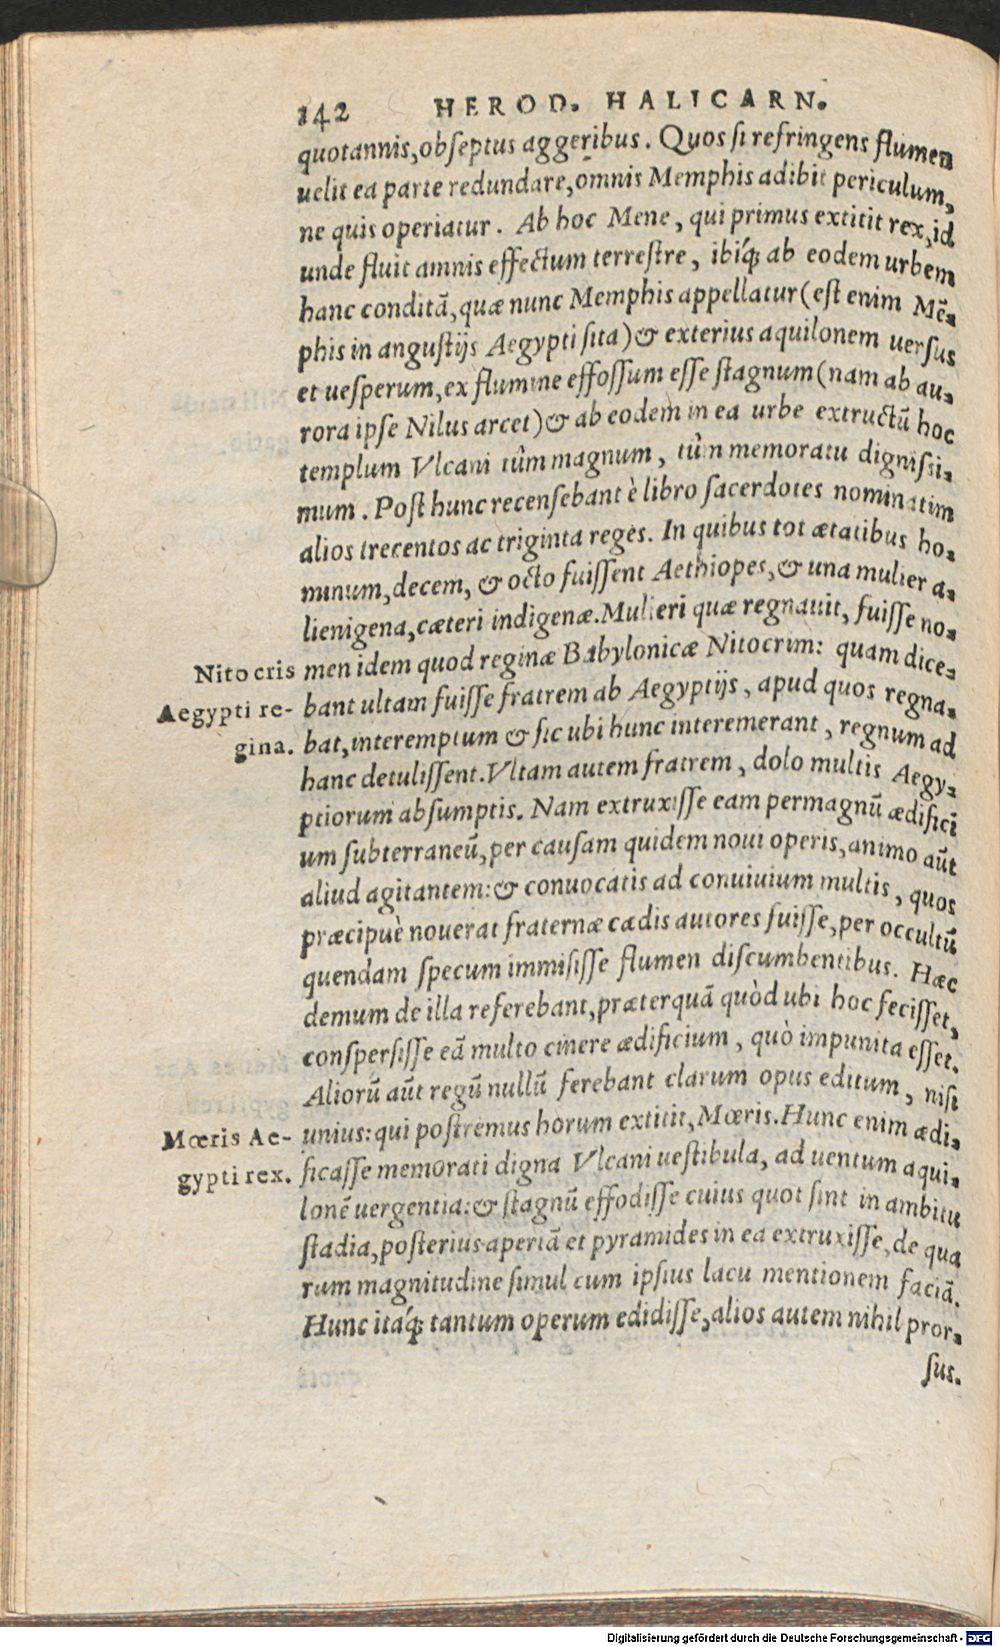 142 HEROD. HALICARN.
quotannis, obſeptus aggeribus. Quos ſi refringens flumen
uelit ea parte redundare, omnis Memphis adibit periculum,
ne quis operiatur. Ab hoc Mene, qui primus extitit rex, id
unde fluit amnis effectum terreſtre, ibíq; ab eodem urbem
hanc conditā, quæ nunc Memphis appellatur (eſt enim Mē-
phis in anguſtijs Aegypti ſita) & exterius aquilonem uerſus
et ueſperum, ex flumine effoſſum eſſe ſtagnum (nam ab au-
rora ipſe Nilus arcet) & ab eodem in ea urbe extructū hoc
templum Vlcani tûm magnum, tûm memoratu digniſſi-
mum. Poſt hunc recenſebant è libro ſacerdotes nominatim
alios trecentos ac triginta reges. In quibus tot ætatibus ho-
minum, decem, & octo fuiſſent Aethiopes, & una mulier a-
lienigena, cæteri indigenæ. Mulieri quæ regnauit, fuiſſe no-
Nitocris men idem quod reginæ Babylonicæ Nitocrim: quam dice-
Aegypti re- bant ultam fuiſſe fratrem ab Aegyptijs, apud quos regna-
gina. bat, interemptum & ſic ubi hunc interemerant, regnum ad
hanc detuliſſent. Vltam autem fratrem, dolo multis Aegy-
ptiorum abſumptis. Nam extruxiſſe eam permagnū ædifici
um ſubterraneū, per cauſam quidem noui operis, animo aūt
aliud agitantem: & conuocatis ad conuiuium multis, quos
præcipuè nouerat fraternæ cædis autores fuiſſe, per occultū
quendam ſpecum immiſiſſe flumen diſcumbentibus. Hæc
demum de illa referebant, præterquā quòd ubi hoc feciſſet,
conſperſiſſe eā multo cinere ædificium, quò impunita eſſet.
Aliorū aūt regū nullū ferebant clarum opus editum, niſi
Mœris Ae- unius: qui poſtremus horum extitit, Mœris. Hunc enim ædi-
gypti rex. ficaſſe memorati digna Vlcani ueſtibula, ad uentum aqui-
lonē uergentia: & ſtagnū effodiſſe cuius quot ſint in ambitu
ſtadia, poſterius aperiā et pyramides in ea extruxiſſe, de qua
rum magnitudine ſimul cum ipſius lacu mentionem faciā.
Hunc itáq; tantum operum edidiſſe, alios autem nihil pror-
ſus.
Digitalisierung gefördert durch die Deutsche Forschungsgemeinschaft - DFG